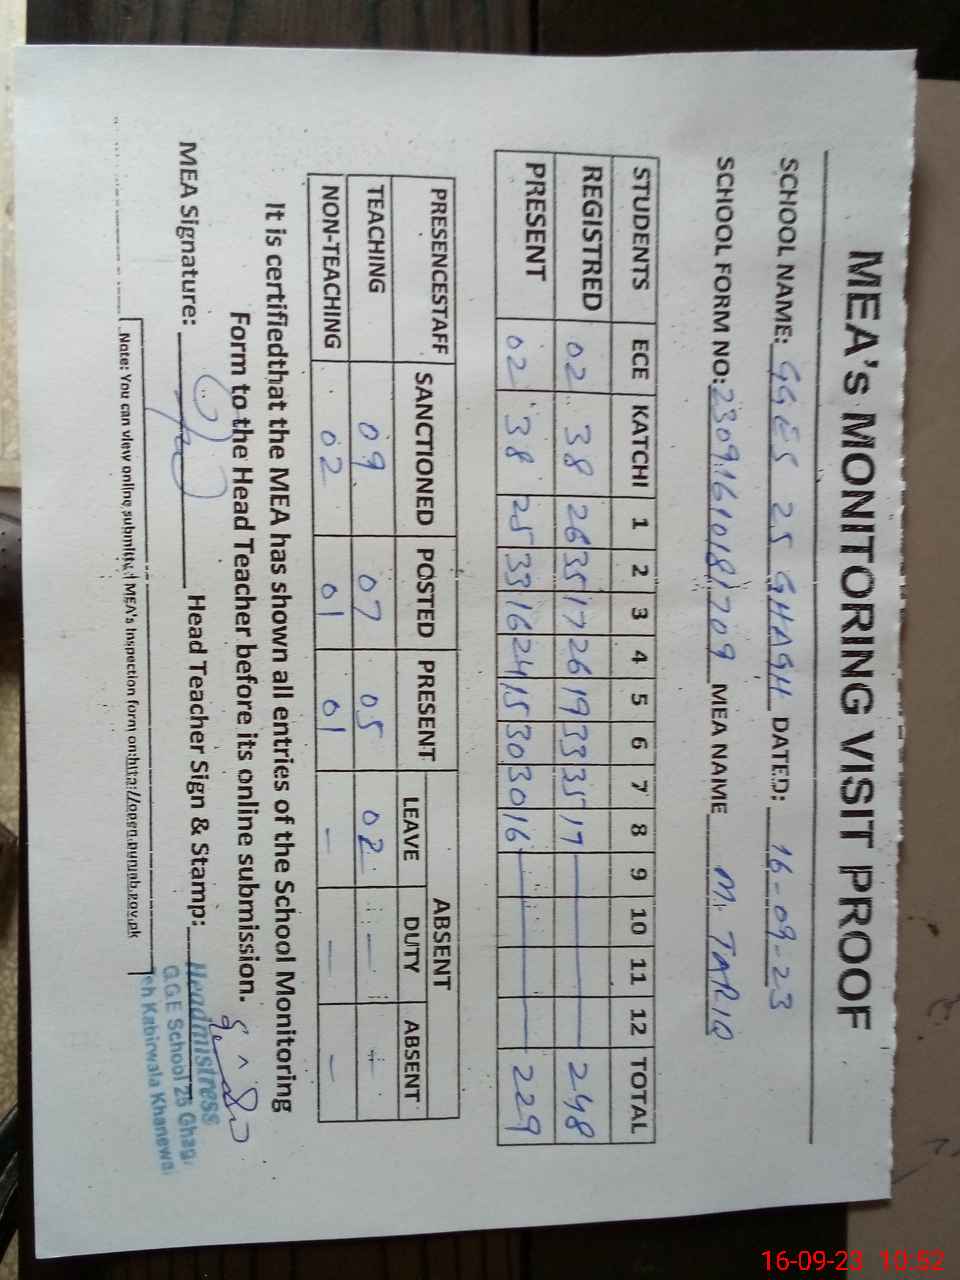 MEA's MONITORING VISIT PROOF
SCHOOL NAME: GGES 25 GHAGH DATED: 16-09-23
SCHOOL FORM NO: 23091610181709 MEA NAME M. TARIQ
STUDENTS ECE KATCHI 1 2 3 4 5 6 7 8 9 10 11 12 TOTAL
REGISTRED 02 38 26 35 17 26 19 33 35 17 248
PRESENT 02 38 25 33 16 24 15 30 30 16 229
PRESENCESTAFF SANCTIONED POSTED PRESENT ABSENT
LEAVE DUTY ABSENT
TEACHING 09 07 05 02 - -
NON-TEACHING 02 01 01 - - -
It is certifiedthat the MEA has shown all entries of the School Monitoring
Form to the Head Teacher before its online submission.
MEA Signature: Head Teacher Sign & Stamp:
Headmistress
G.G.E School 25 Ghag
Teh Kabirwala Khanewal
Note: You can view online submitted MEA's Inspection form on:http://open.punjab.gov.pk
16-09-23 10:52